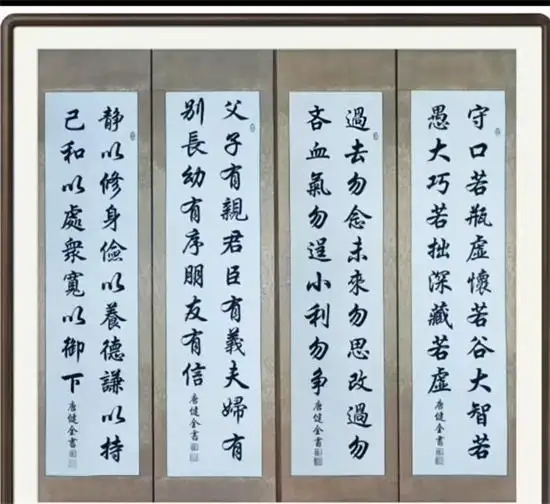 守口若瓶虛懷若谷大智若
愚大巧若拙深藏若虛
唐健全書
過去勿念未來勿思改過勿
吝血氣勿逞小利勿争
唐健全書
父子有親君臣有義夫婦有
别長幼有序朋友有信
唐健全書
静以修身儉以養德謙以持
己和以處衆寬以御下
唐健全書